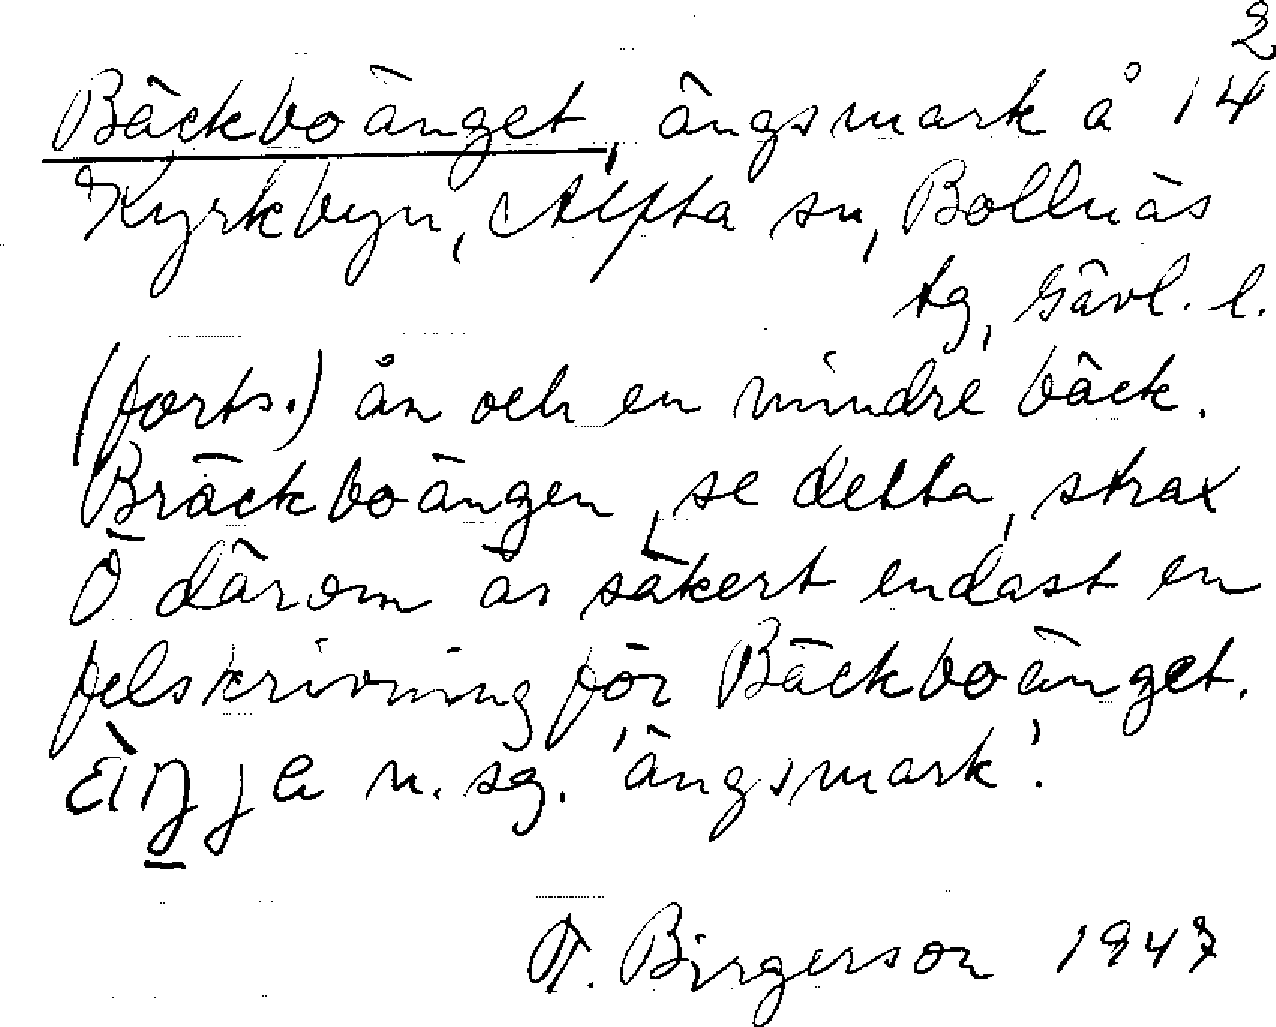 2
Bäckboänget, ängsmark å 14
Kyrkbyn, Alfta sn, Bollnäs
tg, Gävl. l.
(forts.) ån och en mindre bäck.
Bräckboängen, se detta, strax
Ö därom är säkert endast en
felskrivning för Bäckboänget.
n. sg. 'ängsmark'.
F. Birgerson 1947